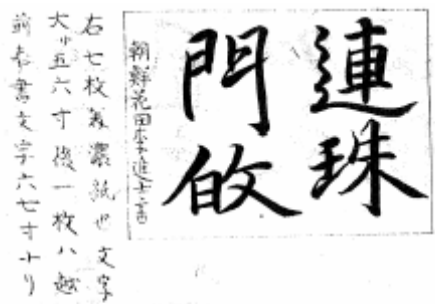 連珠
門
朝鮮花田李進士書
右七枚美濃紙也文字
大サ五六寸後一枚ハ越
前奉書文字六七寸ナリ